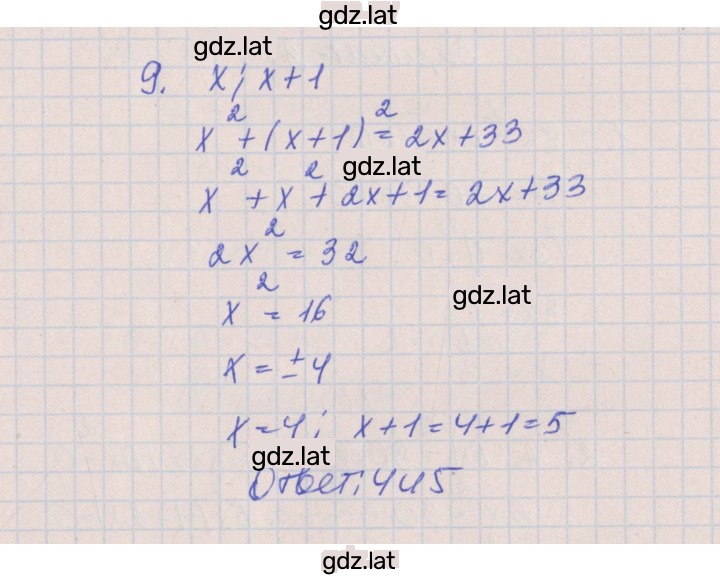 gdz.lat
gdz.lat
9. x; x+1
x² + (x+1)² = 2x+33
gdz.lat
x² + x² + 2x+1 = 2x+33
2x² = 32
gdz.lat
x² = 16
x = ±4
x = 4; x+1 = 4+1 = 5
gdz.lat
Ответ: 4 и 5
gdz.lat